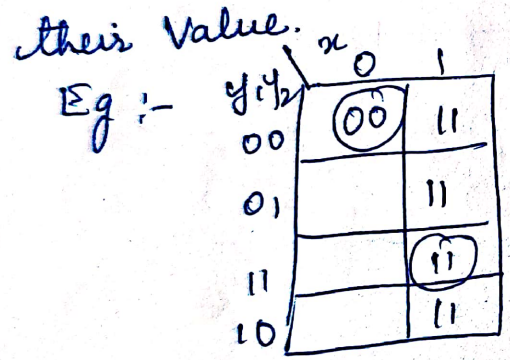 their Value.
Eg :-
x
0 1
y1y2
00 00 11
01 11
11 11
10 11